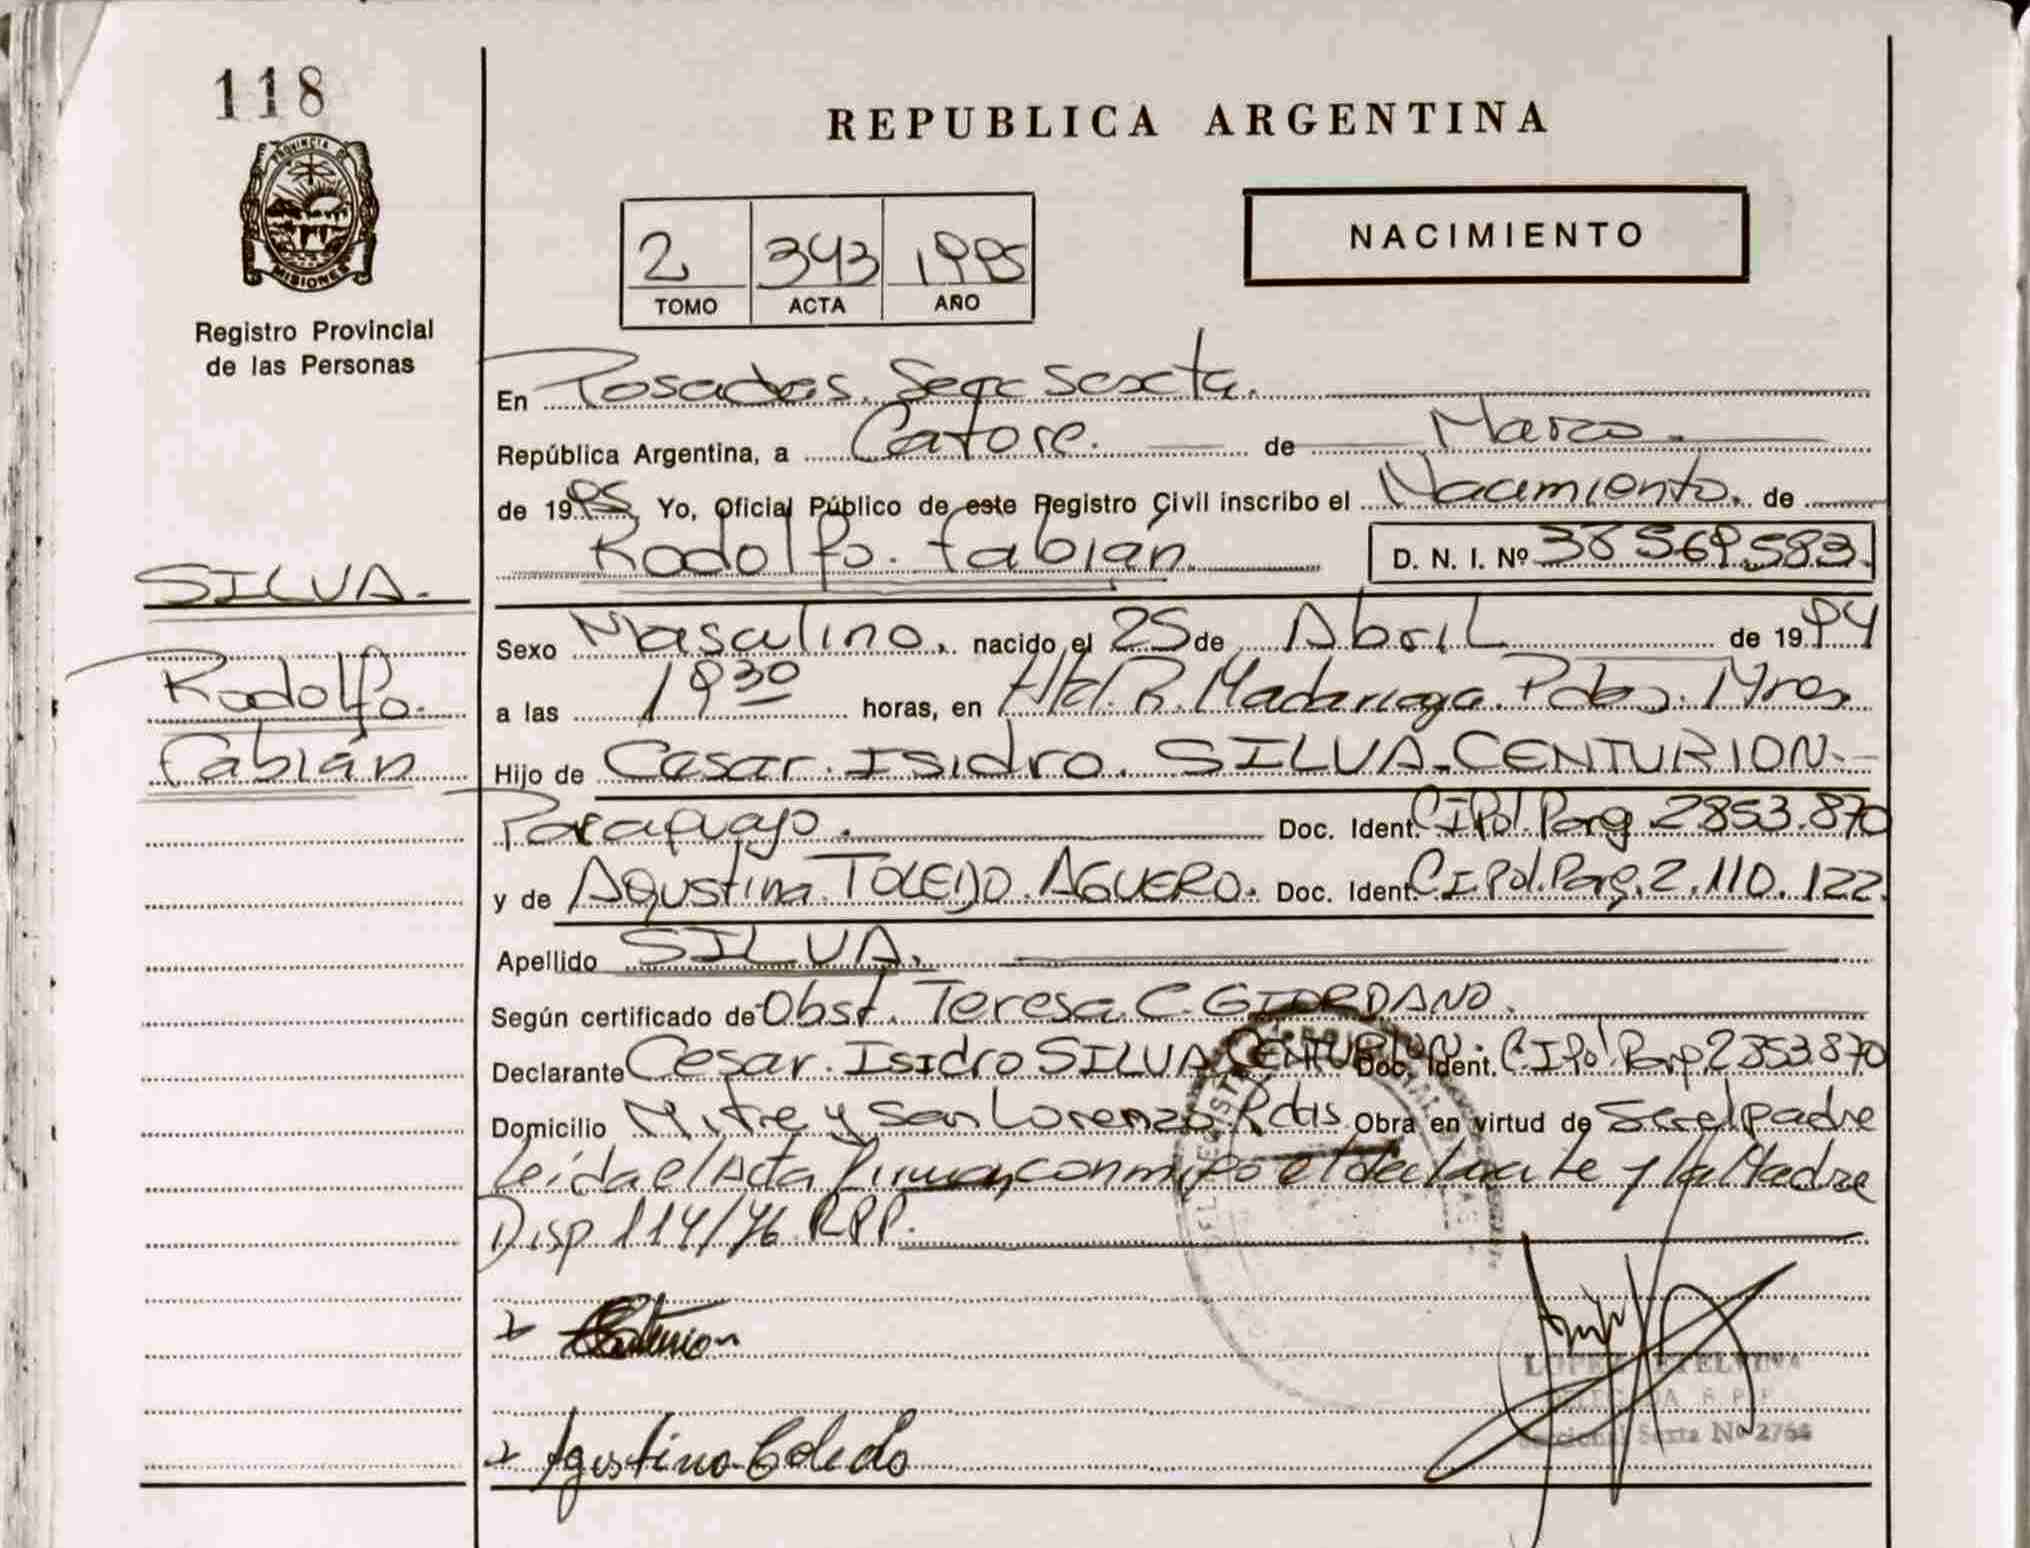 118
PROVINCIA DE
MISIONES
Registro Provincial
de las Personas
REPUBLICA ARGENTINA
2 343 1995
TOMO ACTA AÑO
NACIMIENTO
En Posadas. Secc Sexta.
República Argentina, a Catorce. de Marzo.
de 1995 Yo, Oficial Público de este Registro Civil inscribo el Nacimiento. de
Rodolfo. Fabián D. N. I. Nº 38.569.583.
SILVA.
Rodolfo.
Fabián
Sexo Masculino. nacido el 25 de Abril de 1994
a las 19 30 horas, en Htal. R. Madariaga. Pdas. Mnes
Hijo de Cesar. Isidro. SILVA.CENTURION.
Paraguayo. Doc. Ident. CIPol. Parg 2853.870
y de Agustina TOLEDO. AGUERO. Doc. Ident. C.I.Pol. Parg. 2.110.122.
Apellido SILVA.
Según certificado de Obst. Teresa. C. GIORDANO.
Declarante Cesar. Isidro SILVA CENTURION. Doc. Ident. C.IPol Parg 2853.870
Domicilio Mitre y San Lorenzo. Pdas Obra en virtud de Ser el padre
Leída el Acta firman conmigo el declarante y la Madre
Disp 114/76 RPP.
Centurion
Agustina Toledo
LOPEZ ETELVINA
R.P.P.
Seccional Sexta Nº 2764